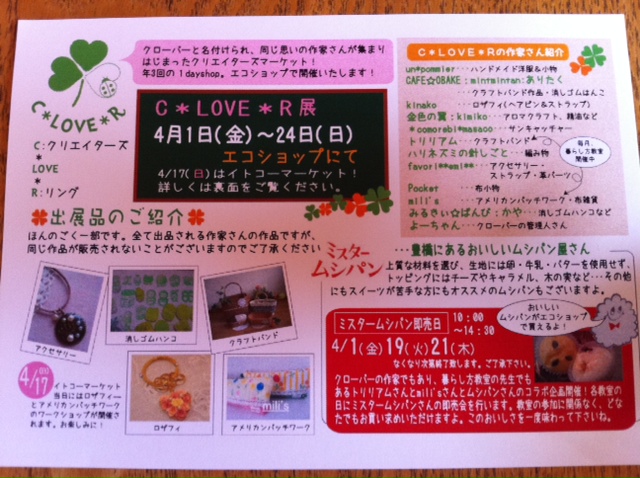 クローバーと名付けられ、同じ思いの作家さんが集まり
はじまったクリエイターズマーケット！
年3回の1dayshop。エコショップで開催いたします！
C＊LOVE＊R
C：クリエイターズ
＊
LOVE
＊
R：リング
C＊LOVE＊R展
4月1日(金)～24日(日)
エコショップにて
4/17(日)はイトコーマーケット！
詳しくは裏面をご覧ください。
C＊LOVE＊Rの作家さん紹介
un*pommier…ハンドメイド洋服&小物
CAFE☆OBAKE：mintmintan:ありたく
クラフトバンド作品・消しゴムはんこ
kinako …ロザフィ(ヘアピン&ストラップ)
金色の翼：kimiko…アロマクラフト、精油など
*comorebi*masaco…サンキャッチャー
トリリアム…クラフトバンド
ハリネズミの針しごと…編み物
favori**emi**…アクセサリー・
ストラップ・革パーツ
Pocket …布小物
mili's …アメリカンパッチワーク・布雑貨
みるきぃ☆ばんび：かや…消しゴムハンコなど
よーちゃん…クローバーの管理人さん
毎月、
暮らし方教室
開催中
出展品のご紹介
ほんのごく一部です。全て出品される作家さんの作品ですが、
同じ作品が販売されないことがございますのでご了承ください
アクセサリー
消しゴムハンコ
クラフトバンド
4/17(日)
イトコーマーケット
当日にはロザフィー
とアメリカンパッチワーク
のワークショップが開催さ
れます。お楽しみに！
ロザフィ
mili's
アメリカンパッチワーク
ミスター
ムシパン
…豊橋にあるおいしいムシパン屋さん
上質な材料を選び、生地には卵・牛乳・バターを使用せず、
トッピングにはチーズやキャラメル、木の実など…その他
にもスイーツが苦手な方にもオススメのムシパンもございますよ。
ミスタームシパン即売日
10：00
～14：30
4/1(金)19(火)21(木)
なくなり次第終了致します。ご了承下さい。
おいしい
ムシパンがエコショップ
で買えるよ！
クローバーの作家でもあり、暮らし方教室の先生でも
あるトリリアムさんとmili'sさんとムシパンさんのコラボ企画開催！各教室の
日にミスタームシパンさんの即売会を行います。教室の参加に関係なく、どな
たでもお買い求めいただけますよ。このおいしさを一度味わって下さいね。